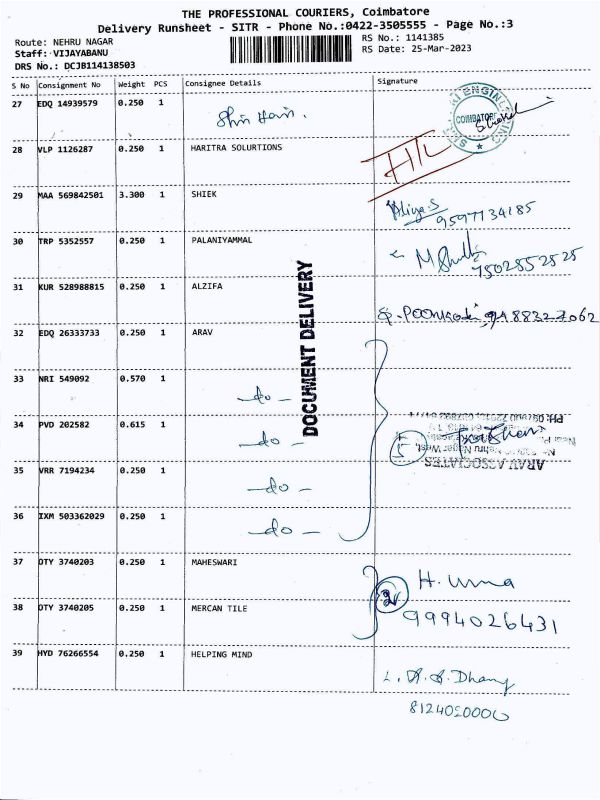 THE PROFESSIONAL COURIERS, Coimbatore
Delivery Runsheet - SITR - Phone No.:0422-3505555 - Page No.:3
Route: NEHRU NAGAR
Staff: VIJAYABANU
DRS No.: DCJB114138503
RS No.: 1141385
RS Date: 25-Mar-2023
S No Consignment No Weight PCS Consignee Details Signature
27 EDQ 14939579 0.250 1
COIMBATORE
28 VLP 1126287 0.250 1 HARITRA SOLURTIONS
29 MAA 569842501 3.300 1 SHIEK
9597134185
30 TRP 5352557 0.250 1 PALANIYAMMAL
7502552525
31 KUR 528988815 0.250 1 ALZIFA
DOCUMENT DELIVERY
32 EDQ 26333733 0.250 1 ARAV
33 NRI 549092 0.570 1 -do-
34 PVD 202582 0.615 1 -do-
5
ARAV ASSOCIATES
35 VRR 7194234 0.250 1 -do-
36 IXM 503362029 0.250 1 -do-
37 OTY 3740203 0.250 1 MAHESWARI
2 H. Uma
38 OTY 3740205 0.250 1 MERCAN TILE
9994026431
39 HYD 76266554 0.250 1 HELPING MIND
8124020000